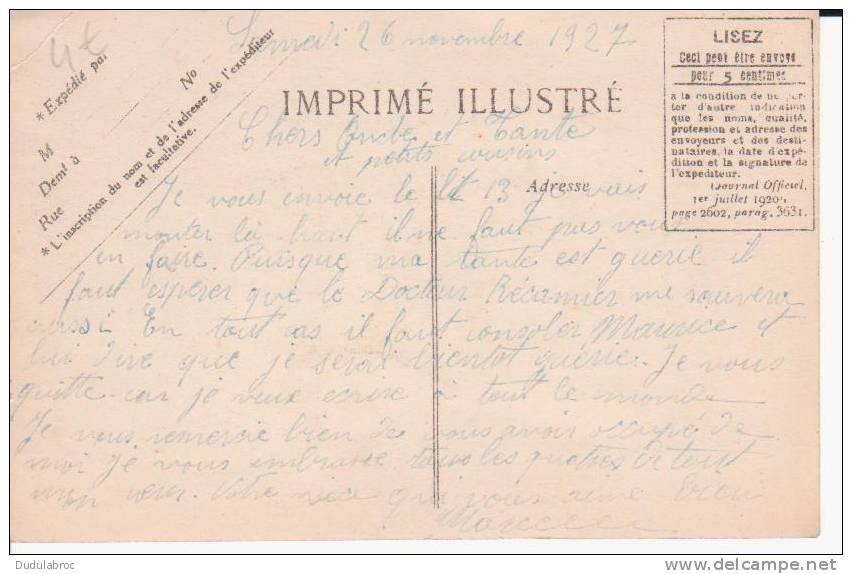 4€
Samedi 26 novembre 1927
* Expédié par
No
M
Demt à
Rue
* L'inscription du nom et de l'adresse de l'expéditeur
est facultative.
IMPRIMÉ ILLUSTRÉ
LISEZ
Ceci peut être envoyé
pour 5 centimes
à la condition de ne por-
ter d'autre indication
que les noms, qualité,
profession et adresse des
envoyeurs et des desti-
nataires, la date d'expé-
dition et la signature de
l'expéditeur.
(Journal Officiel,
1er juillet 1920,
page 2602, parag. 3631.
Adresse
Chers Oncle et Tante
et petits cousins
Je vous envoie le lit 13 je vais
monter là haut il ne faut pas vous
en faire. Puisque ma tante est guerie il
faut esperer que le Docteur Récamier me sauvera
aussi En tout cas il faut consoler Maurice et
lui dire que je serai bientot guerie. Je vous
quitte car je veux ecrire à tout le monde
Je vous remercie bien de vous avoir occupé de
moi Je vous embrasse tous les quatres et tout
mon Votre niece qui vous aime bien
Marcelle
Dudulabroc
delcampe.net